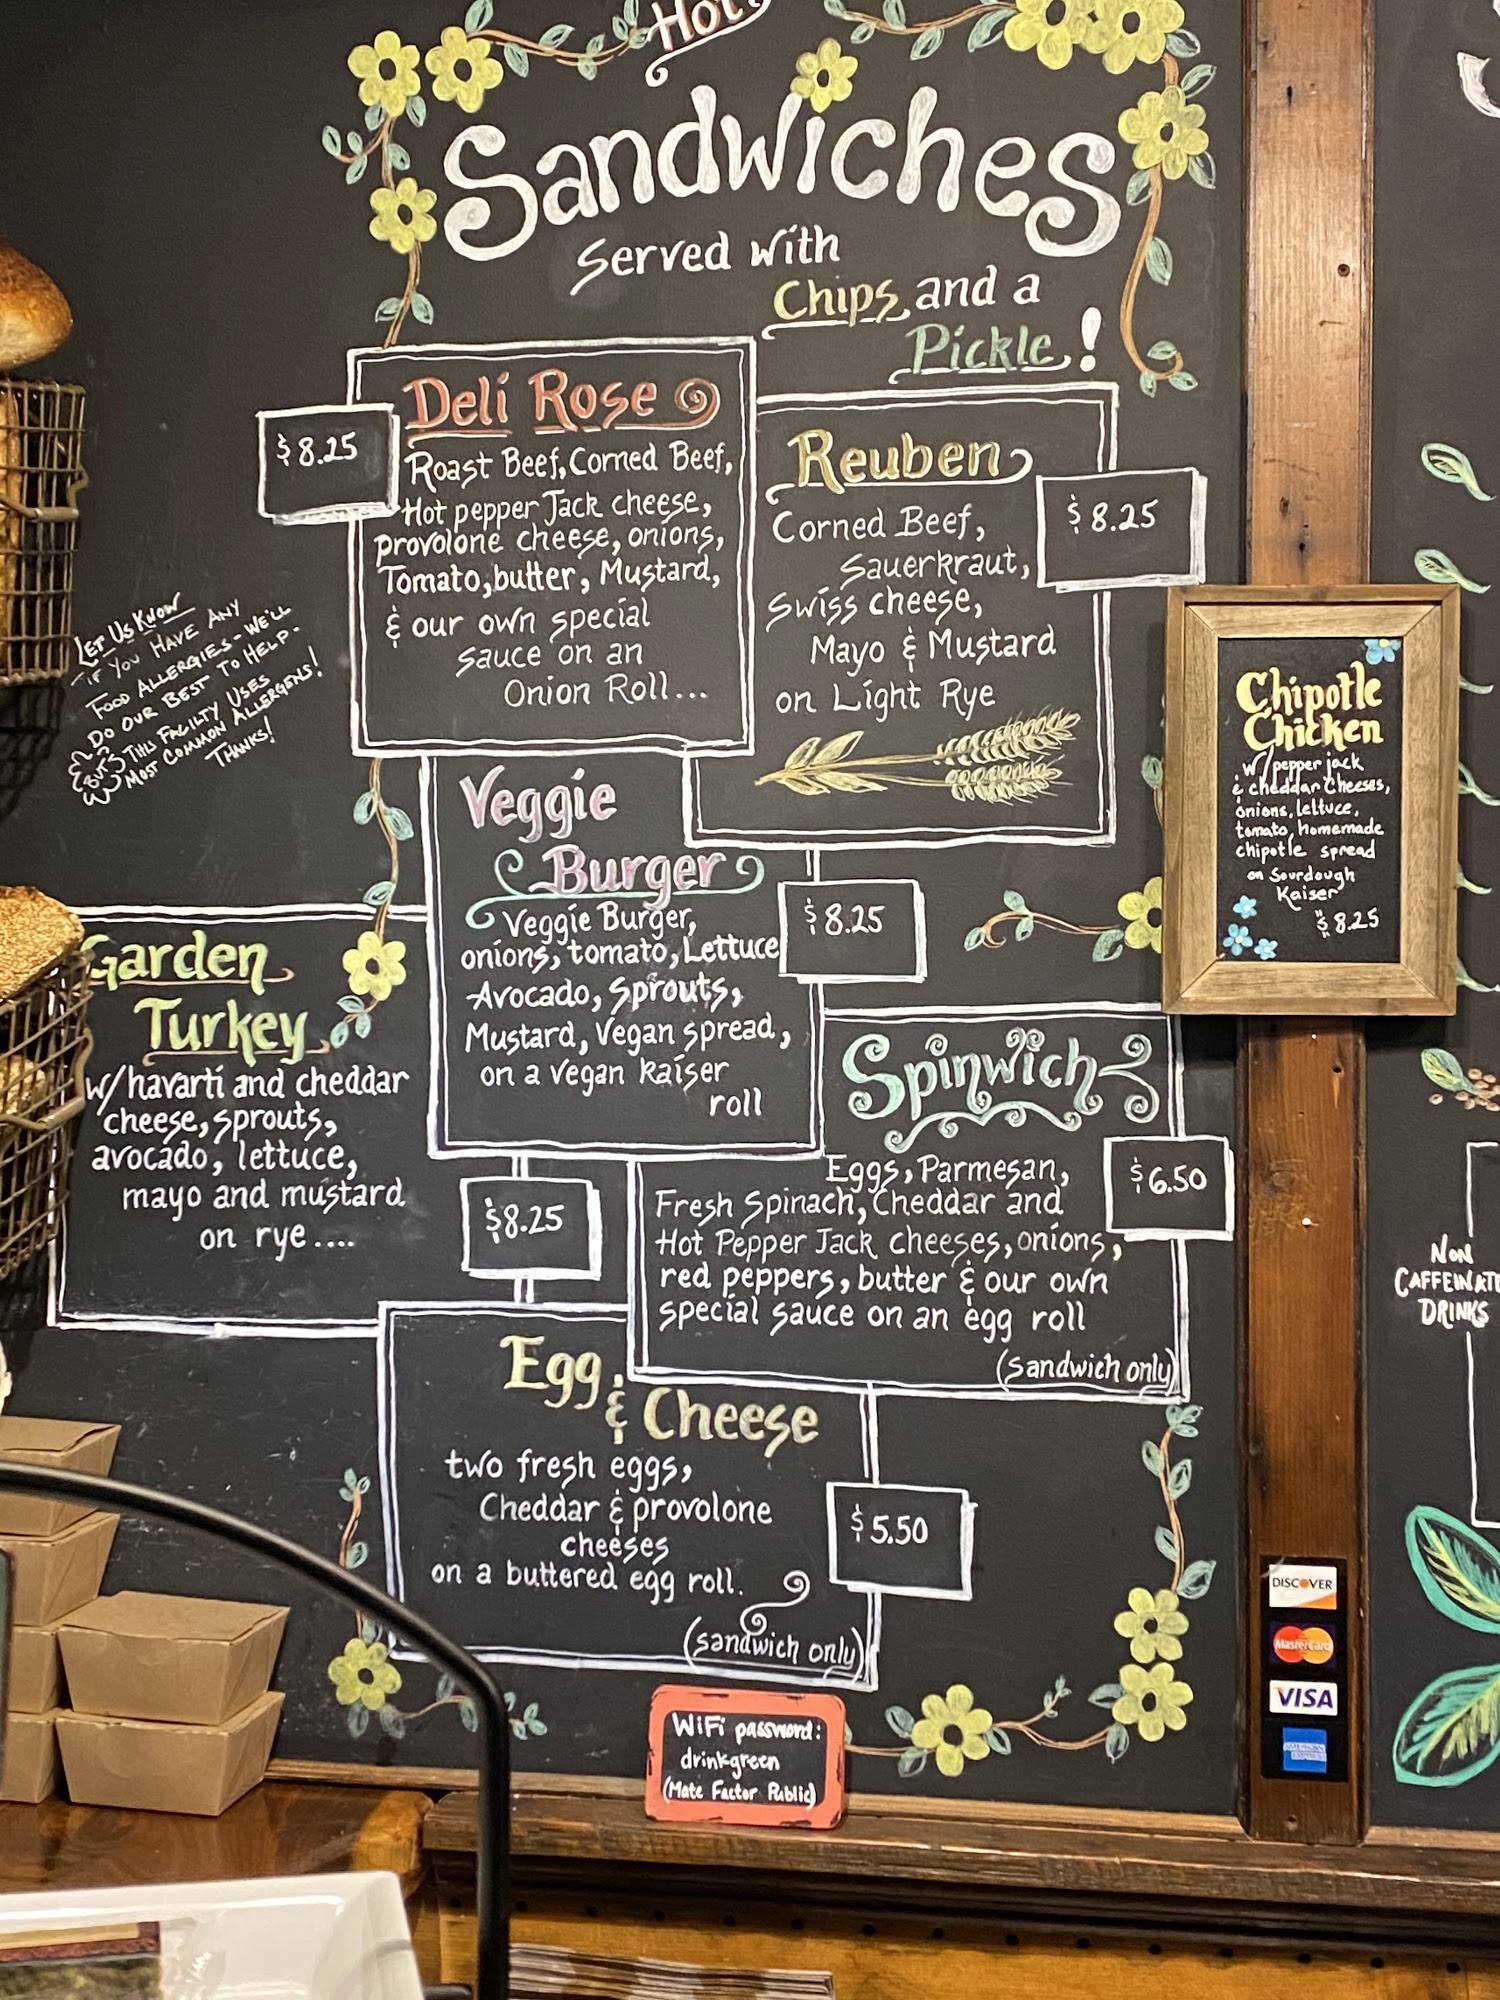 Hot!
Sandwiches
Served with
Chips and a
Pickle!
Deli Rose
$8.25
Roast Beef, Corned Beef,
Hot pepper Jack cheese,
provolone cheese, onions,
Tomato, butter, Mustard,
& our own special
sauce on an
Onion Roll...
Reuben
$8.25
Corned Beef,
Sauerkraut,
Swiss cheese,
Mayo & Mustard
on Light Rye
LET US KNOW
IF YOU HAVE ANY
FOOD ALLERGIES - WE'LL
DO OUR BEST TO HELP.
BUT THIS FACILTY USES
MOST COMMON ALLERGENS!
THANKS!
Chipotle
Chicken
w/ pepper jack
& cheddar cheeses,
onions, lettuce,
tomato, homemade
chipotle spread
on Sourdough
Kaiser
$8.25
Veggie
Burger
$8.25
Veggie Burger,
onions, tomato, Lettuce
Avocado, sprouts,
Mustard, Vegan spread,
on a vegan kaiser
roll
Garden
Turkey
w/ havarti and cheddar
cheese, sprouts,
avocado, lettuce,
mayo and mustard
on rye....
$8.25
Spinwich
$6.50
Eggs, Parmesan,
Fresh Spinach, Cheddar and
Hot Pepper Jack cheeses, onions,
red peppers, butter & our own
special sauce on an egg roll
(sandwich only)
Egg
& Cheese
two fresh eggs,
Cheddar & provolone
cheeses
on a buttered egg roll.
(sandwich only)
$5.50
WiFi password:
drinkgreen
(Mate Factor Public)
NON
CAFFEINATE
DRINKS
DISCOVER
MasterCard
VISA
AMERICAN
EXPRESS